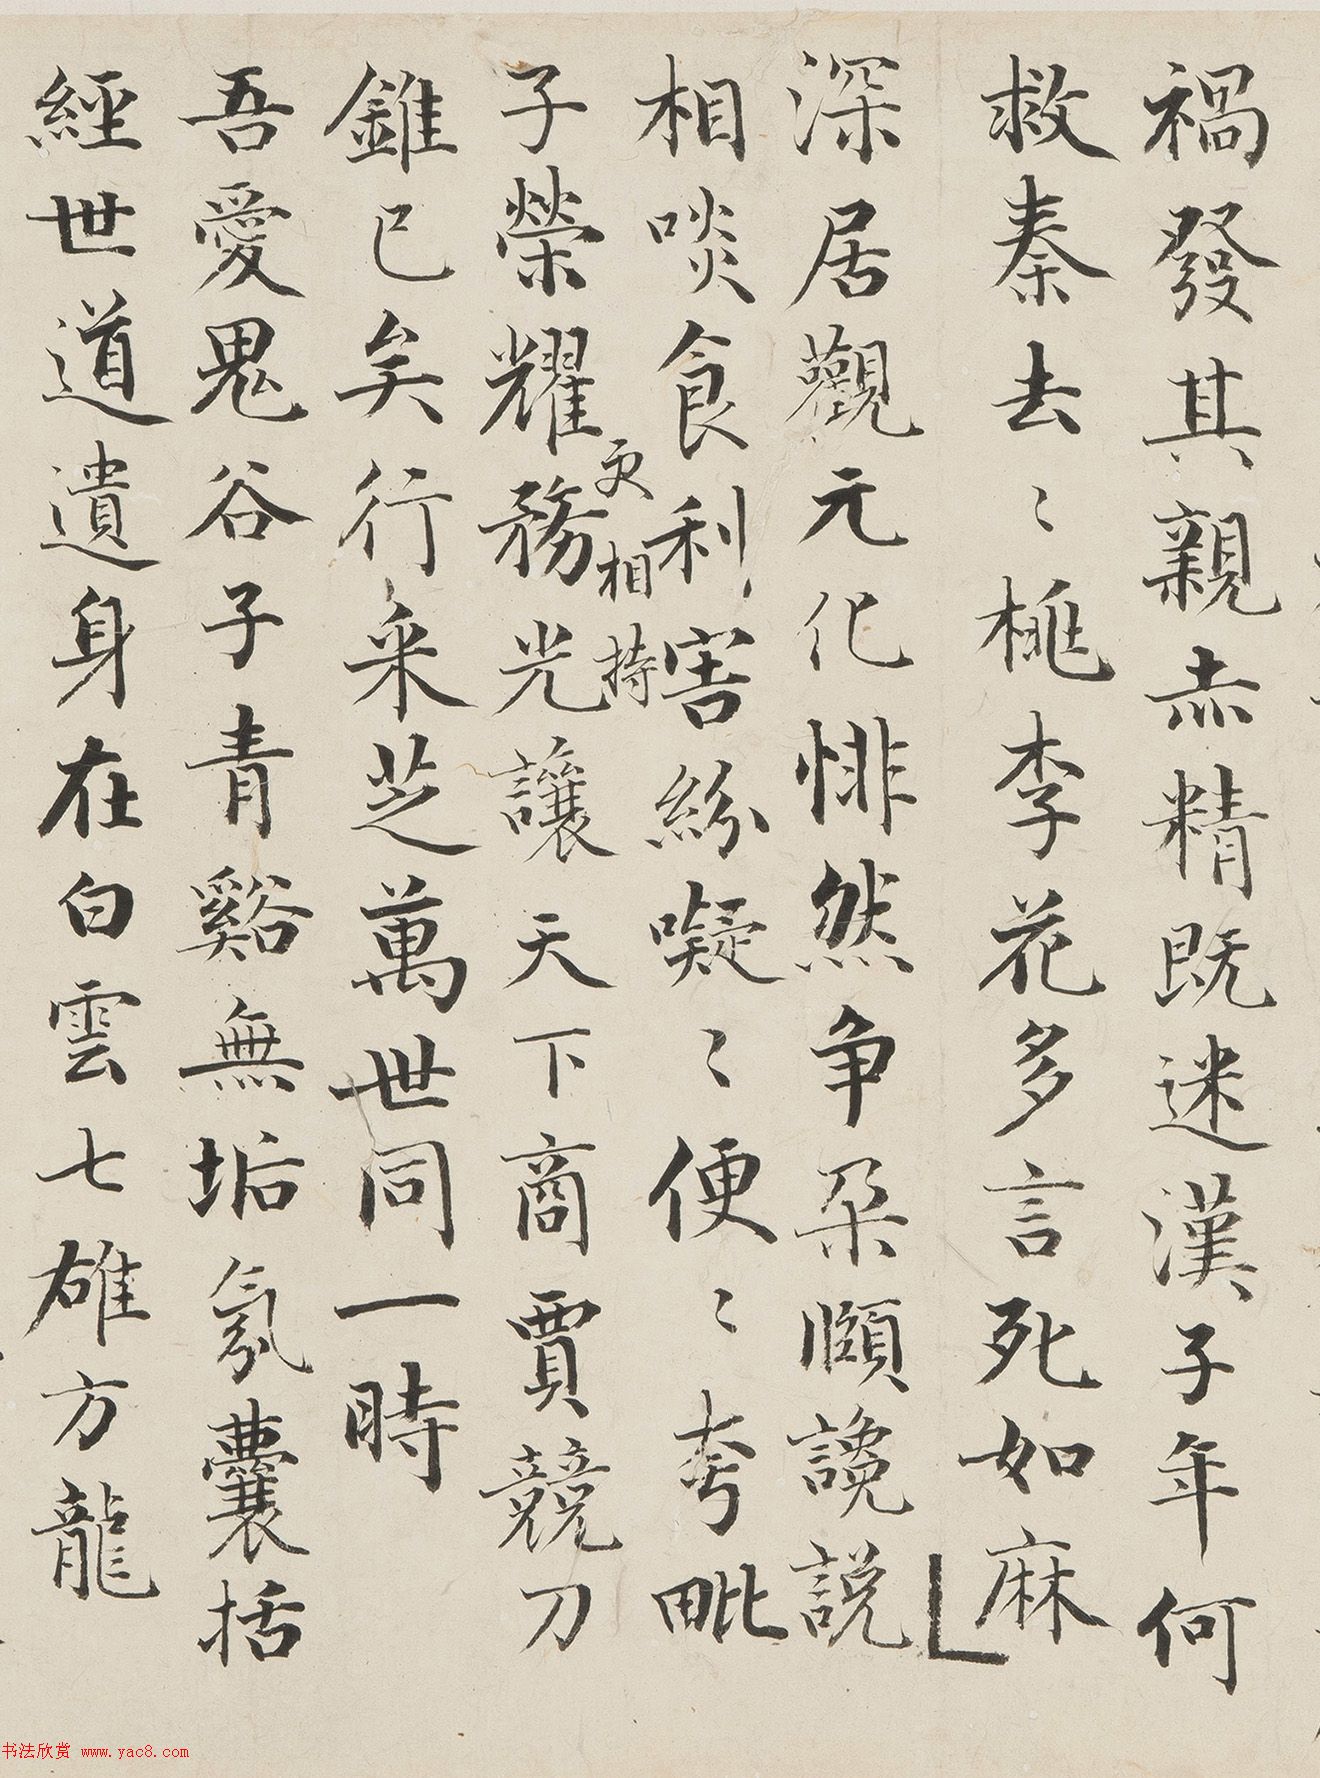 禍發其親赤精既迷漢子年何
救秦去〻桃李花多言死如麻
深居觀元化悱然争朵頤讒説
相啖食利害紛㘈〻便〻夸毗
子榮耀更相持務光讓天下商賈競刀
錐已矣行采芝萬世同一時
吾愛鬼谷子青谿無垢氛囊括
經世道遺身在白雲七雄方龍
书法欣赏 www.yac8.com